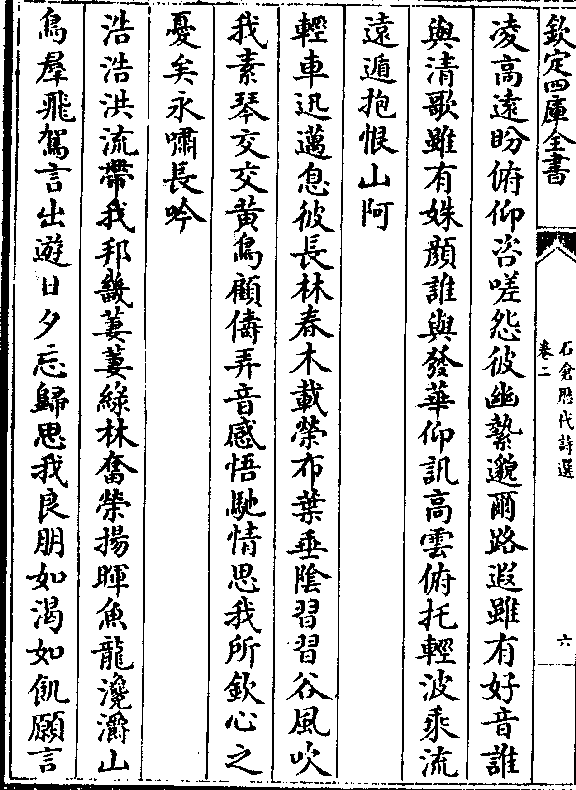 欽定四庫全書
石倉歴代詩選
卷二
六
凌高遠盼俯仰咨嗟怨彼幽縶邈爾路遐雖有好音誰
與清歌雖有姝顔誰與發華仰訊高雲俯托輕波乘流
遠遁抱恨山阿
輕車迅邁息彼長林春木載榮布葉垂陰習習谷風吹
我素琴交交黄鳥顧儔弄音感悟馳情思我所欽心之
憂矣永嘯長吟
浩浩洪流帶我邦畿萋萋綠林奮榮揚暉魚龍瀺灂山
鳥羣飛駕言出遊日夕忘歸思我良朋如渴如飢願言